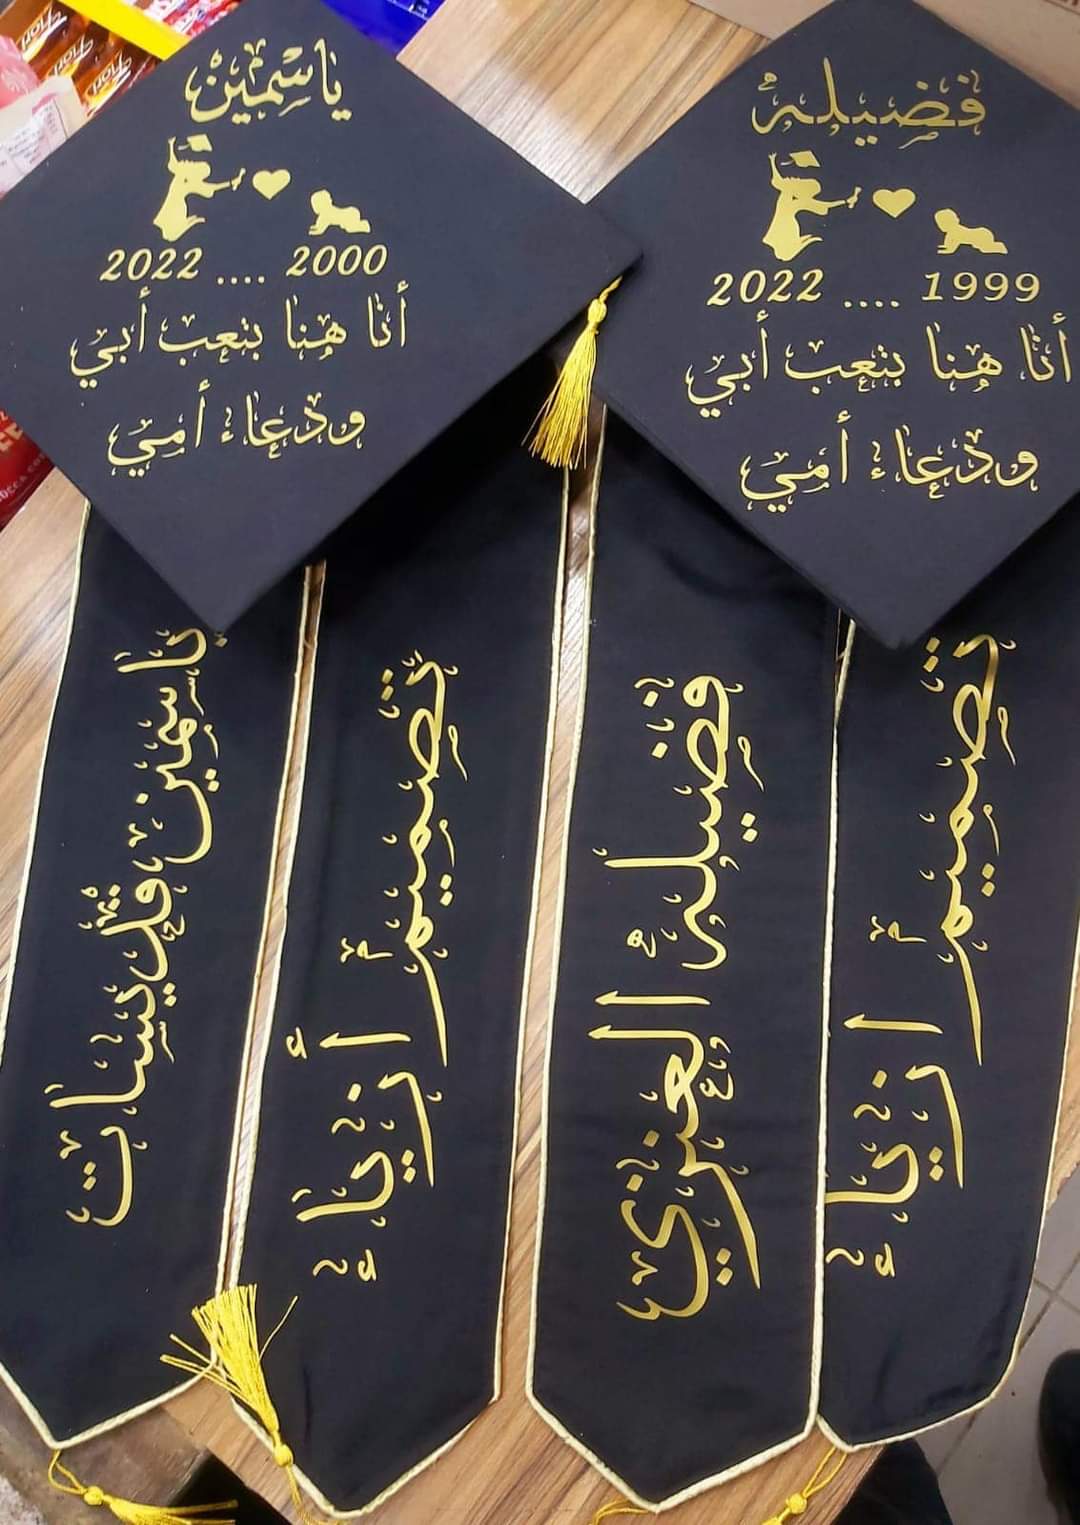 ياسمين
2022 .... 2000
أنا هنا بتعب أبي
ودعاء أمي
فضيله
2022 .... 1999
أنا هنا بتعب أبي
ودعاء أمي
ياسمين
تصميم أزياء
فضيله العنزي
تصميم أزياء
Fiori
Fiori
Fiori